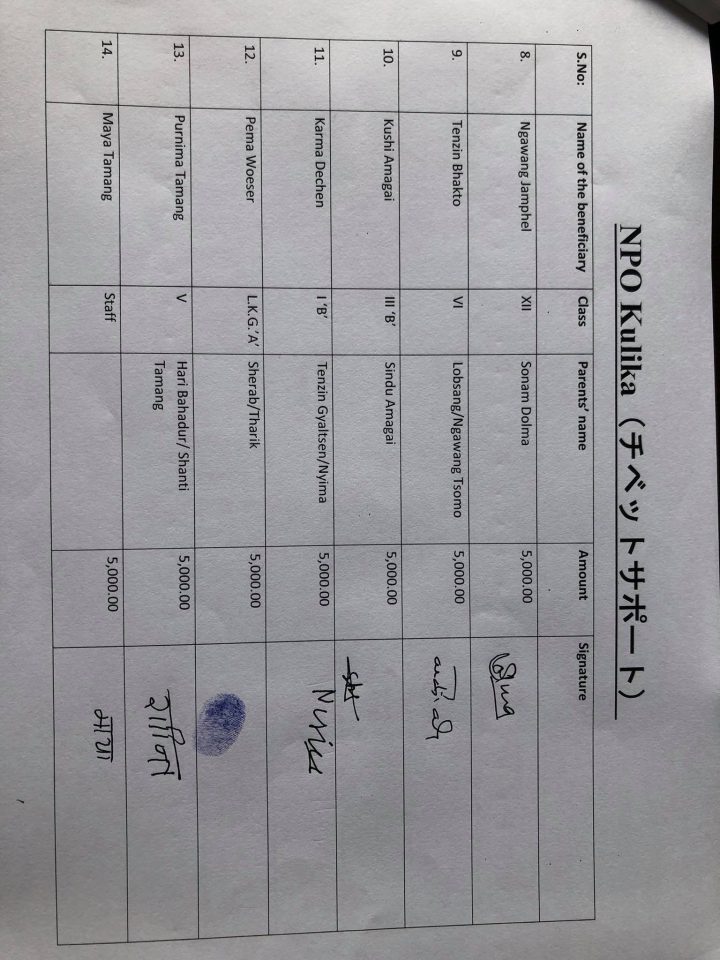 NPO Kulika（チベットサポート）
S.No: Name of the beneficiary Class Parents' name Amount Signature
8. Ngawang Jamphel XII Sonam Dolma 5,000.00
9. Tenzin Bhakto VI Lobsang/Ngawang Tsomo 5,000.00
10. Kushi Amagai III 'B' Sindu Amagai 5,000.00
11. Karma Dechen I 'B' Tenzin Gyaltsen/Nyima 5,000.00
12. Pema Woeser L.K.G.'A' Sherab/Tharik 5,000.00
13. Purnima Tamang V Hari Bahadur/ Shanti 5,000.00
Tamang
14. Maya Tamang Staff 5,000.00 माया